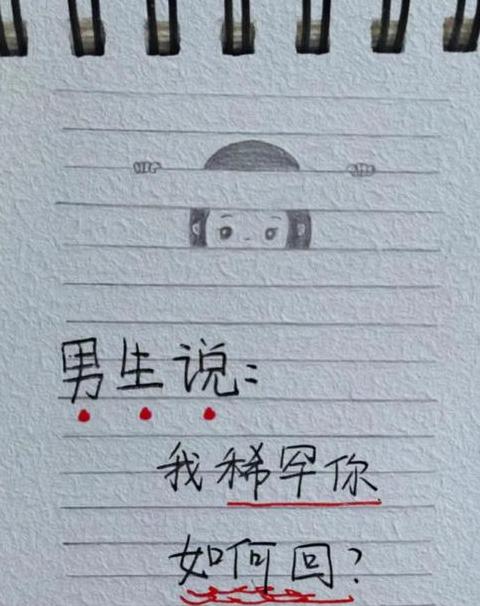 男生说:
我稀罕你
如何回?